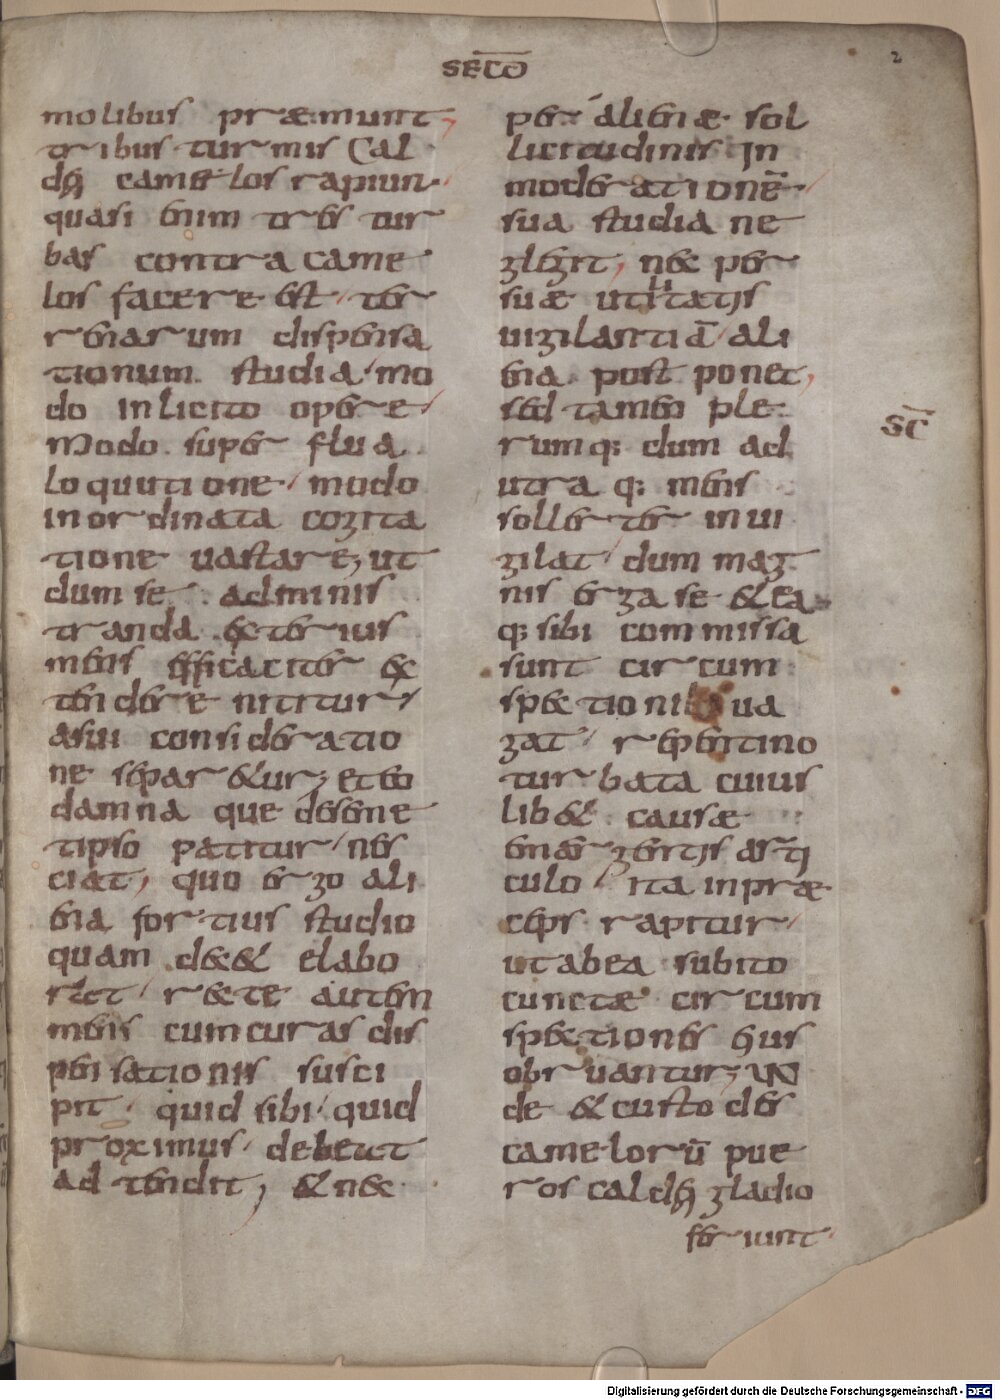 SECD̄
2
molibus præmunt,
tribus turmis Cal
dęi camelos rapiun
quasi enim tres tur
bas contra came
los facere est / ter
renarum dispensa
tionum. studia / mo
do inlicito opere /
modo superflua
loquutione / modo
inordinata cogita
tione uastare; ut
dum se adminis
tranda exterius
mens efficaciter ex
tendere nititur /
a sui consideratio
ne separ&ur; et eo
damna que desem&
ipso patitur / nes
ciat, quo ergo ali
ena fortius studio
quam deb& elabo
rat / recte autem
mens cum curas dis
pensationis susci
pit / quid sibi / quid
proximus / debeat
adtendit, & nec
per alienæ sol
licitudinis in
moderationē /
sua studia ne
glegit, nec per
suæ utilitatis
uigilantiā / ali
ena postponet,
sed tamen ple
rumq; dum ad
utraq; mens
sollerter inui
gilat / dum mag
nis erga se & ea
q; sibi commissa
sunt circum
spectionib; ua
gat / repentino
turbata cuius
lib& causæ
emergentis arti
culo / ita in præ
ceps rapitur /
ut ab ea subito
cunctæ circum
spectiones eius
obruantur; Un
de & custodes
camelorū pue
ros caldęi gladio
feriunt
SC̄
Digitalisierung gefördert durch die Deutsche Forschungsgemeinschaft - DFG